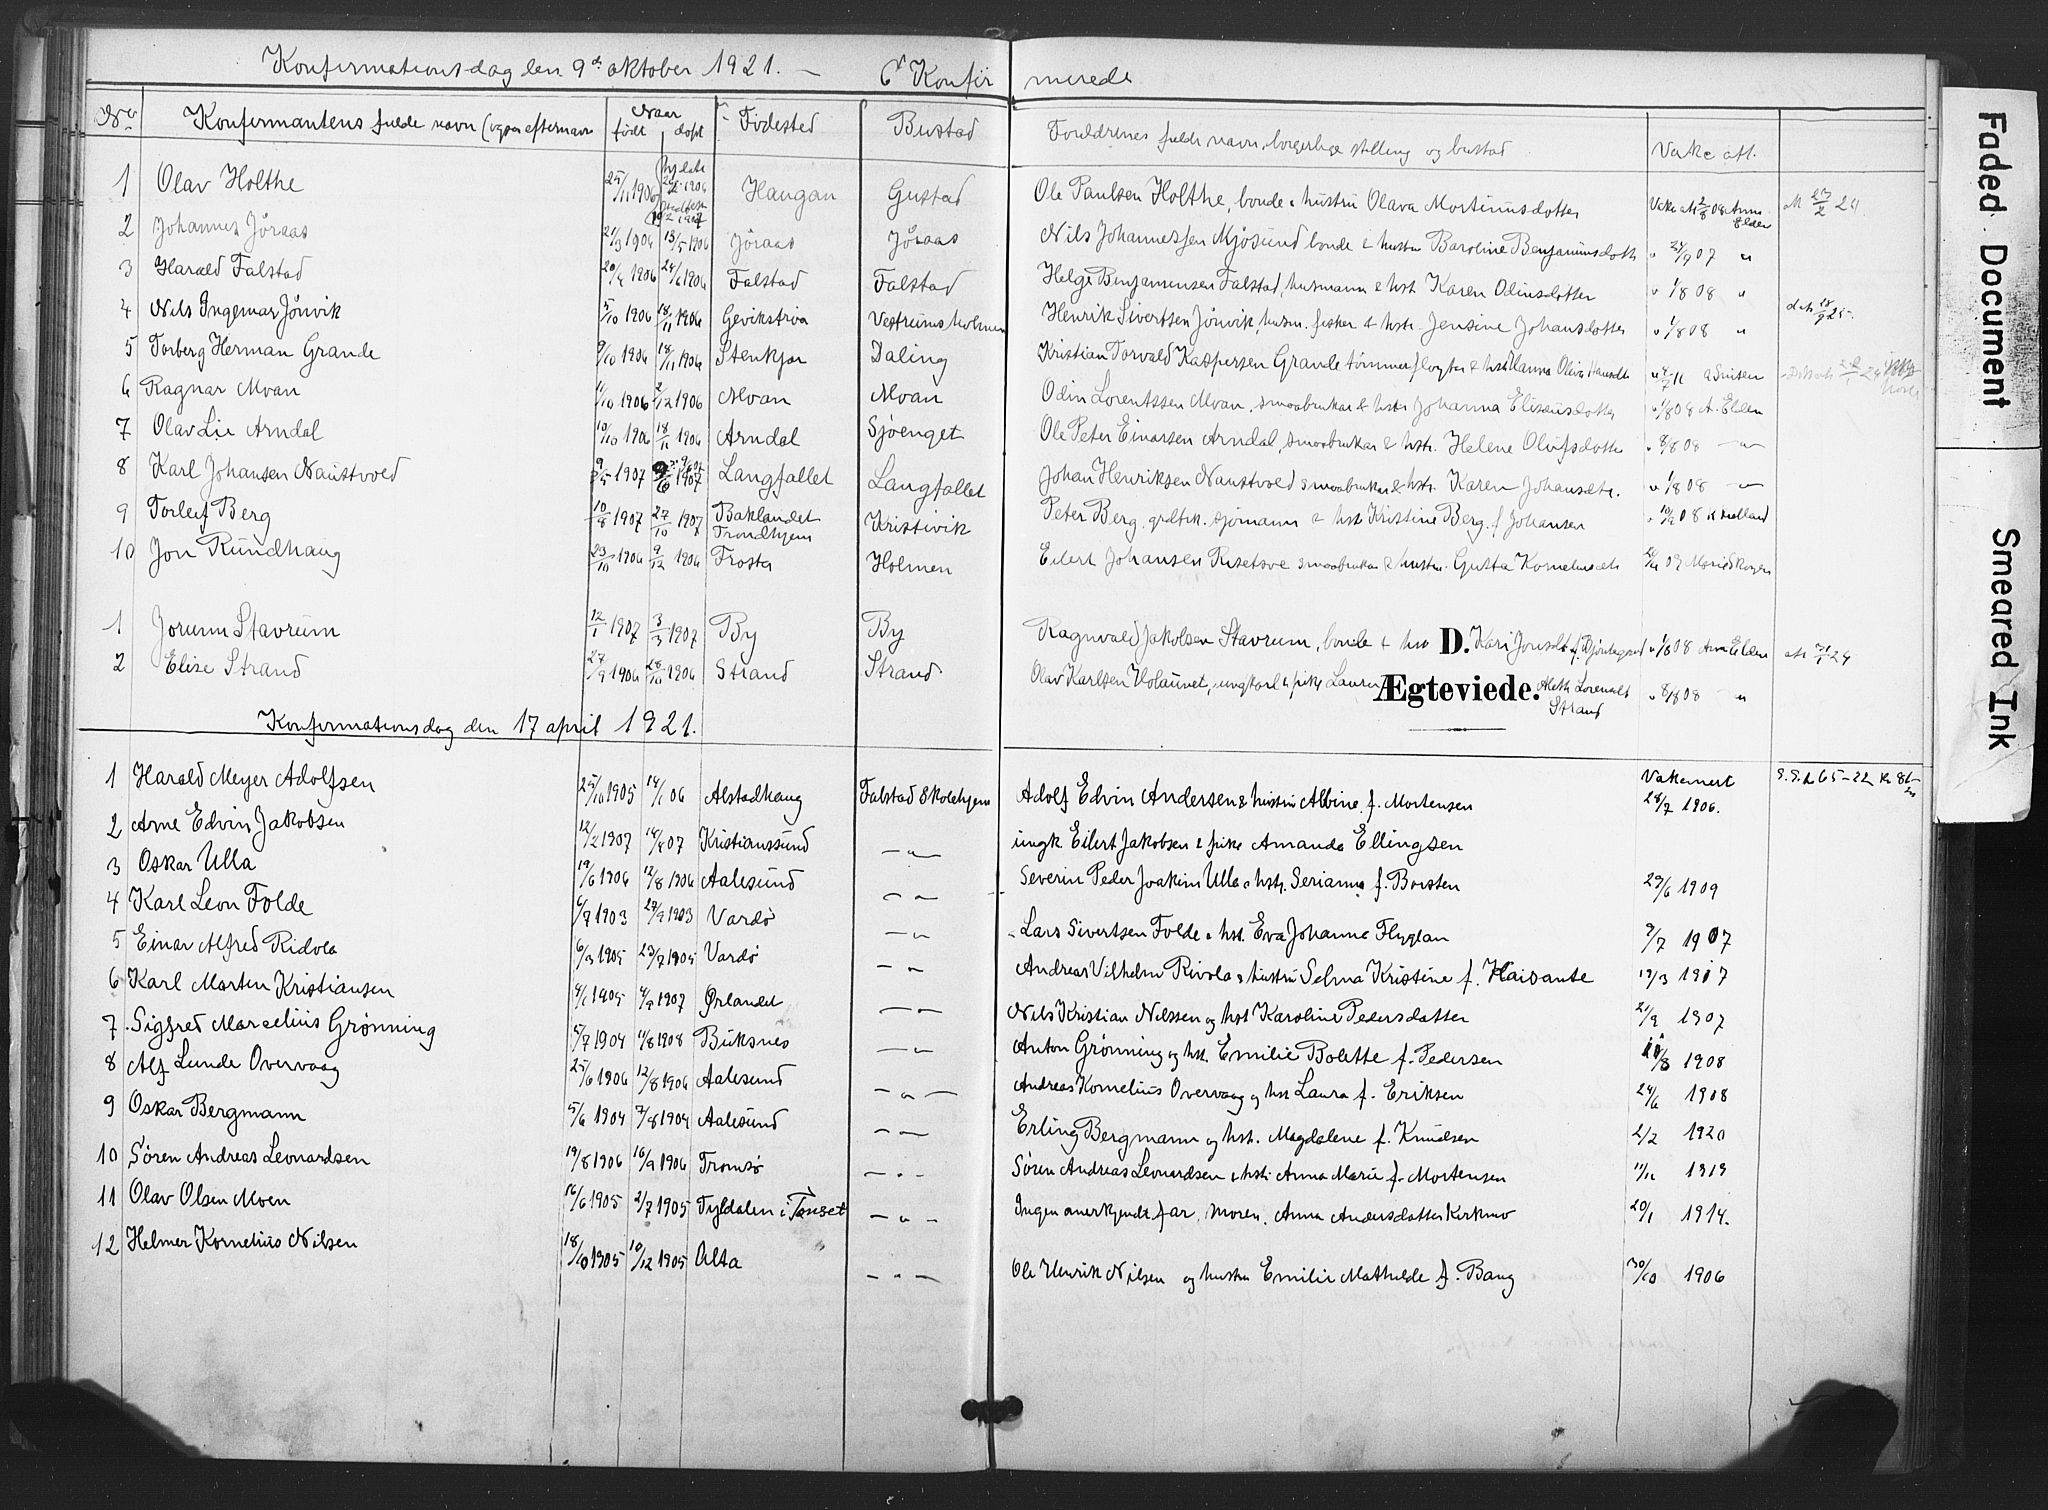 Konfirmationsdag den 9d oktober 1921. — Konfir merede
No Konfirmantens fulde navn (ogsaa efternavn Naar født døpt Fødested Bustad Forældrenes fulde navn, borgerlige stilling og bustad Vakc att.
1 Olav Holthe 25/11 1906 Haugan Gustad Ole Paulsen Holthe, bonde & hustru Olava Mortinusdotter
2 Johannes Jøraas 21/3 1906 13/5 1906 Jøraas Jøraas Nils Johannessen Mjøsund bonde & hustru Baroline Benjaminsdott 24/9 07 "
3 Harald Falstad 20/4 1906 24/6 1906 Falstad Falstad Helge Benjaminsen Falstad, husmann & hst Karen Odinsdotter " 1/8 08 "
4 Nils Ingemar Jønvik 5/10 1906 18/11 1906 Gevikstrøa Vestrumsholmen Henrik Sivertsen Jønvik, husm. fisker & hstr. Jensine Johansdotter " 1/8 08 "
5 Torberg Herman Grande 9/10 1906 18/11 1906 Stenkjær Daling Kristian Torvald Kaspersen Grande tømmerfløter & hst Hanna Oliva Hansdt
6 Ragnar Moan 11/10 1906 2/12 1906 Moan Moan Odin Lorentssen Moan, smaabruker & hstr Johanna Eliseusdotter " 1/8 08 A. Elden
7 Olav Lie Arndal 10/10 1906 18/11 1906 Arndal Sjøenget Ole Peter Einarsen Arndal, smaabruker & hstr. Helene Olufsdotte " 8/8 08 — " —
8 Karl Johansen Naustvold 9/5 1907 9/6 1907 Langfallet Langfallet Johan Henriksen Naustvold smaabruker & hstr. Karen Johansdtr. " 1/8 08 — " —
9 Torleif Berg 10/8 1907 27/10 1907 Baklandet Trondhjem Kristivik Peter Berg, sjømann & hst Kristine Berg f. Johansen
10 Jon Rundhaug 23/10 1906 9/12 1906 Frosta Holmen Eilert Johansen Risetsve smaabruker & hustru. Gutta Kornelius
1 Jorunn Stavrum 12/1 1907 3/3 1907 By By Ragnvald Jakobsen Stavrum, bonde & hst D. Kari Jons " 1/8 08 Arne Elden att 31/1 24
2 Elise Strand 27/9 1906 28/10 1906 Strand Strand Olav Karlsen Holaunet, ungkarl & pike Laura Ægteviede. Aleth Lorentsdt Strand " 8/8 08 — "
Konfirmationsdag den 17 april 1921.
1 Harald Meyer Adolfsen 25/10 1905 14/1 06 Alstadhaug Falstad Skolehjem Adolf Edvin Andersen & hustru Albine f. Mortensen Vakcinert 28/7 1906.
2 Arne Edvin Jakobsen 12/2 1907 14/4 07 Kristianssund — " — ungk Eilert Jakobsen & pike Amanda Ellingsen
3 Oskar Ulla 19/6 1906 12/8 1906 Aalesund — " — Severin Peder Joakim Ulla & hstr. Serianna f. Borsten 29/6 1909
4 Karl Leon Folde 6/7 1903 27/9 1903 Vardø — " — Lars Sivertsen Folde & hst. Eva Johanne Flygtan 9/7 1907
5 Einar Alfred Rivola 6/3 1905 23/7 1905 Vardø — " — Andreas Vilhelm Rivola & hustru Selma Kristine f. Haisante 19/3 1917
6 Karl Morten Kristiansen 4/1 1905 4/9 1907 Ørlandet — " — Nils Kristian Nilssen og hst Karoline Pedersdatter 21/9 1907
7 Sigfred Marcelius Grønning 5/7 1904 11/8 1908 Buksnes — " — Anton Grønning og hst. Emilie Bolette f. Pedersen 11/8 1908
8 Alf Lunde Overvaag 25/6 1906 12/8 1906 Aalesund — " — Andreas Kornelius Overvaag og hst Laura f. Eriksen 24/6 1908
9 Oskar Bergmann 5/6 1904 7/8 1904 Aalesund — " — Erling Bergmann og hst. Magdalene f. Knudsen 2/2 1920
10 Søren Andreas Leonardsen 19/8 1906 16/9 1906 Tromsø — " — Søren Andreas Leonardsen & hst. Anna Marie f. Mortensen 17/11 1919
11 Olav Olsen Moen 16/6 1905 2/7 1905 Tyldalen i Tønset — " — Ingen anerkjendt far, moren. Anna Andersdatter Kirkmo 20/1 1914.
12 Helmer Kornelius Nilsen 18/10 1905 10/12 1905 Alta — " — Ole Henrik Nilsen og hustru Emilie Mathilde f. Bang 30/10 1906
Faded Document
Smeared Ink